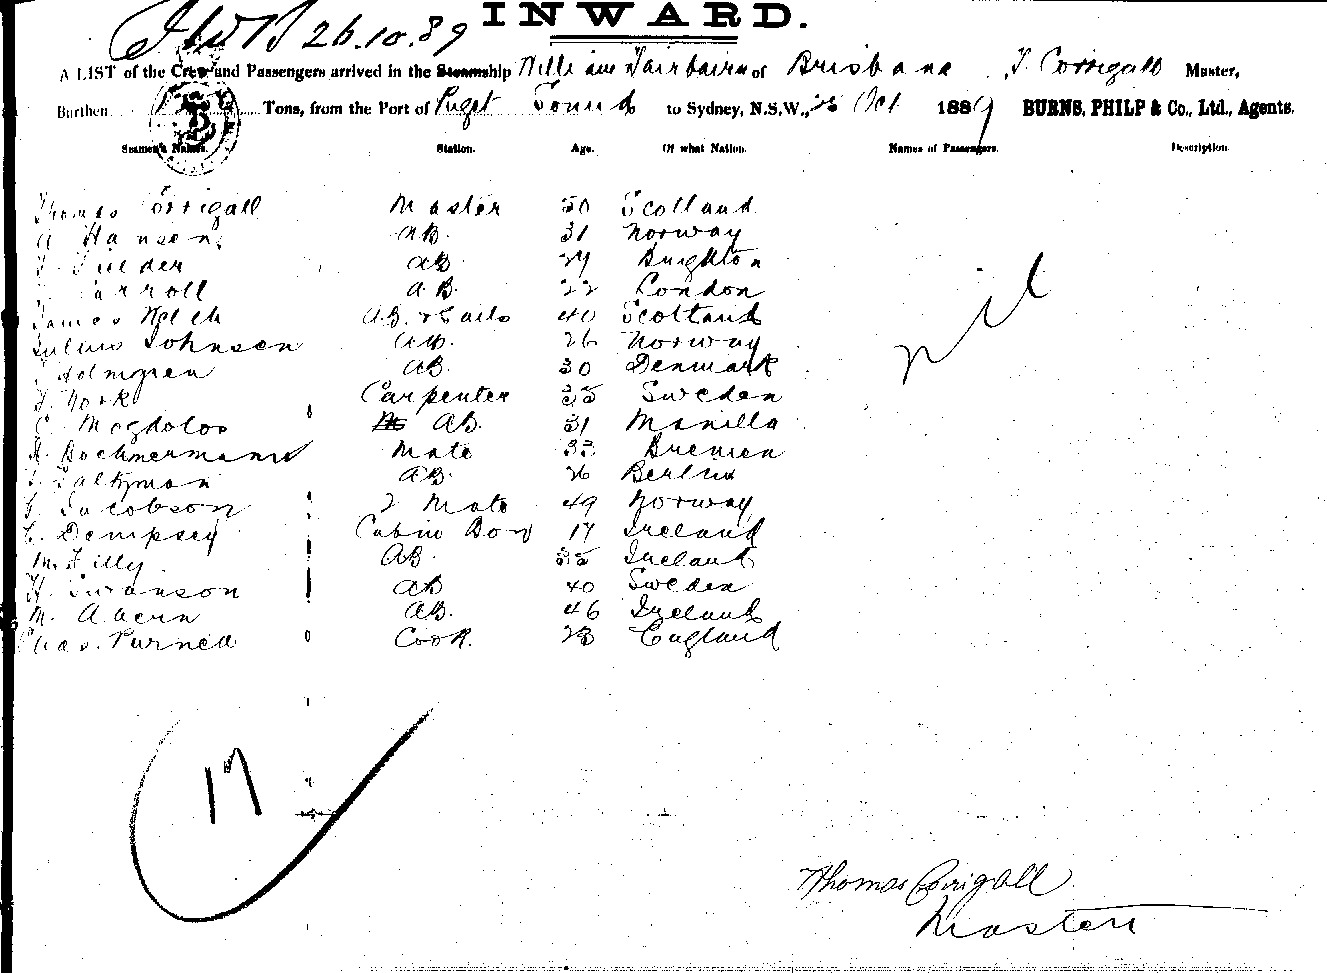 INWARD.
26.10.89
A LIST of the Crew and Passengers arrived in the Steamship William Fairbairn of Brisbane T. Corrigall Master,
Burthen Tons, from the Port of Puget Sound to Sydney, N.S.W., 26 Oct 1889 BURNS, PHILP & Co., Ltd., Agents.
Seamen's Names. Station. Age. Of what Nation. Names of Passengers. Description.
Thomas Corrigall Master 50 Scotland
A Hansen AB. 31 Norway
AB 29 Brighton
Carroll AB. 22 London
James AB. & Sails 40 Scotland
Julius Johnsen AB. 26 Norway
Holmgren AB. 30 Denmark
York Carpenter 35 Sweden
C. Mogdolos AB. 31 Manilla
Bochnermann Mate 33 Bremen
Saltzman AB. 26 Berlin
Jacobson 2 Mate 49 Norway
C. Dempsey Cabin Boy 17 Ireland
M. Filly AB. 35 Ireland
H. Swanson AB 40 Sweden
M. Ahern AB. 46 Ireland
Chas. Cook. 23 England
nil
17
Thomas Corrigall
Master